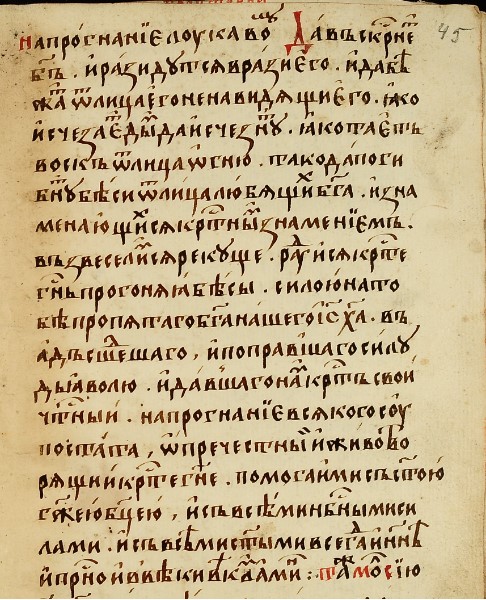 напрогнанїе лоукаво Да въскрⷭ҇не 45
бг҃ъ . и разидутся врази его . и да бѣ
жаⷮ ѿ лица его ненавидящиⷯ его . ꙗко
исчезаеⷮ дыⷨ да исчезнуⷮ . ꙗко таетъ
воскъ ѿ лица ѡгню . тако да поги
бнуⷮ бѣси ѿ лица любящиⷯ бг҃а . и зна
менающиⷯся крⷭ҇тныⷨ знаменїемъ .
възвеселиⷨся рекуще . раⷣуися крⷭ҇те
гн҃ь прогоняꙗ бѣсы . силою на то
бѣ пропятаго бг҃а нашего іс҃ х҃а . въ
адъ сшеⷣшаго , и поправшаго силу
дьꙗволю . и давшаго наⷨ крⷭ҇тъ свои
чⷭ҇тныи . на прогнанїе всякого соу
постата , ѡ пречестныи и животво
рящии крⷭ҇те гн҃ь . помогаи ми съ ст҃ою
гж҃ею бц҃ею , и съ всѣми нбⷭ҇ными си
лами . и съ всѣми ст҃ыми всегда и нн҃ѣ
и прⷭ҇но и въ вѣки вѣкоⷨ аминь :